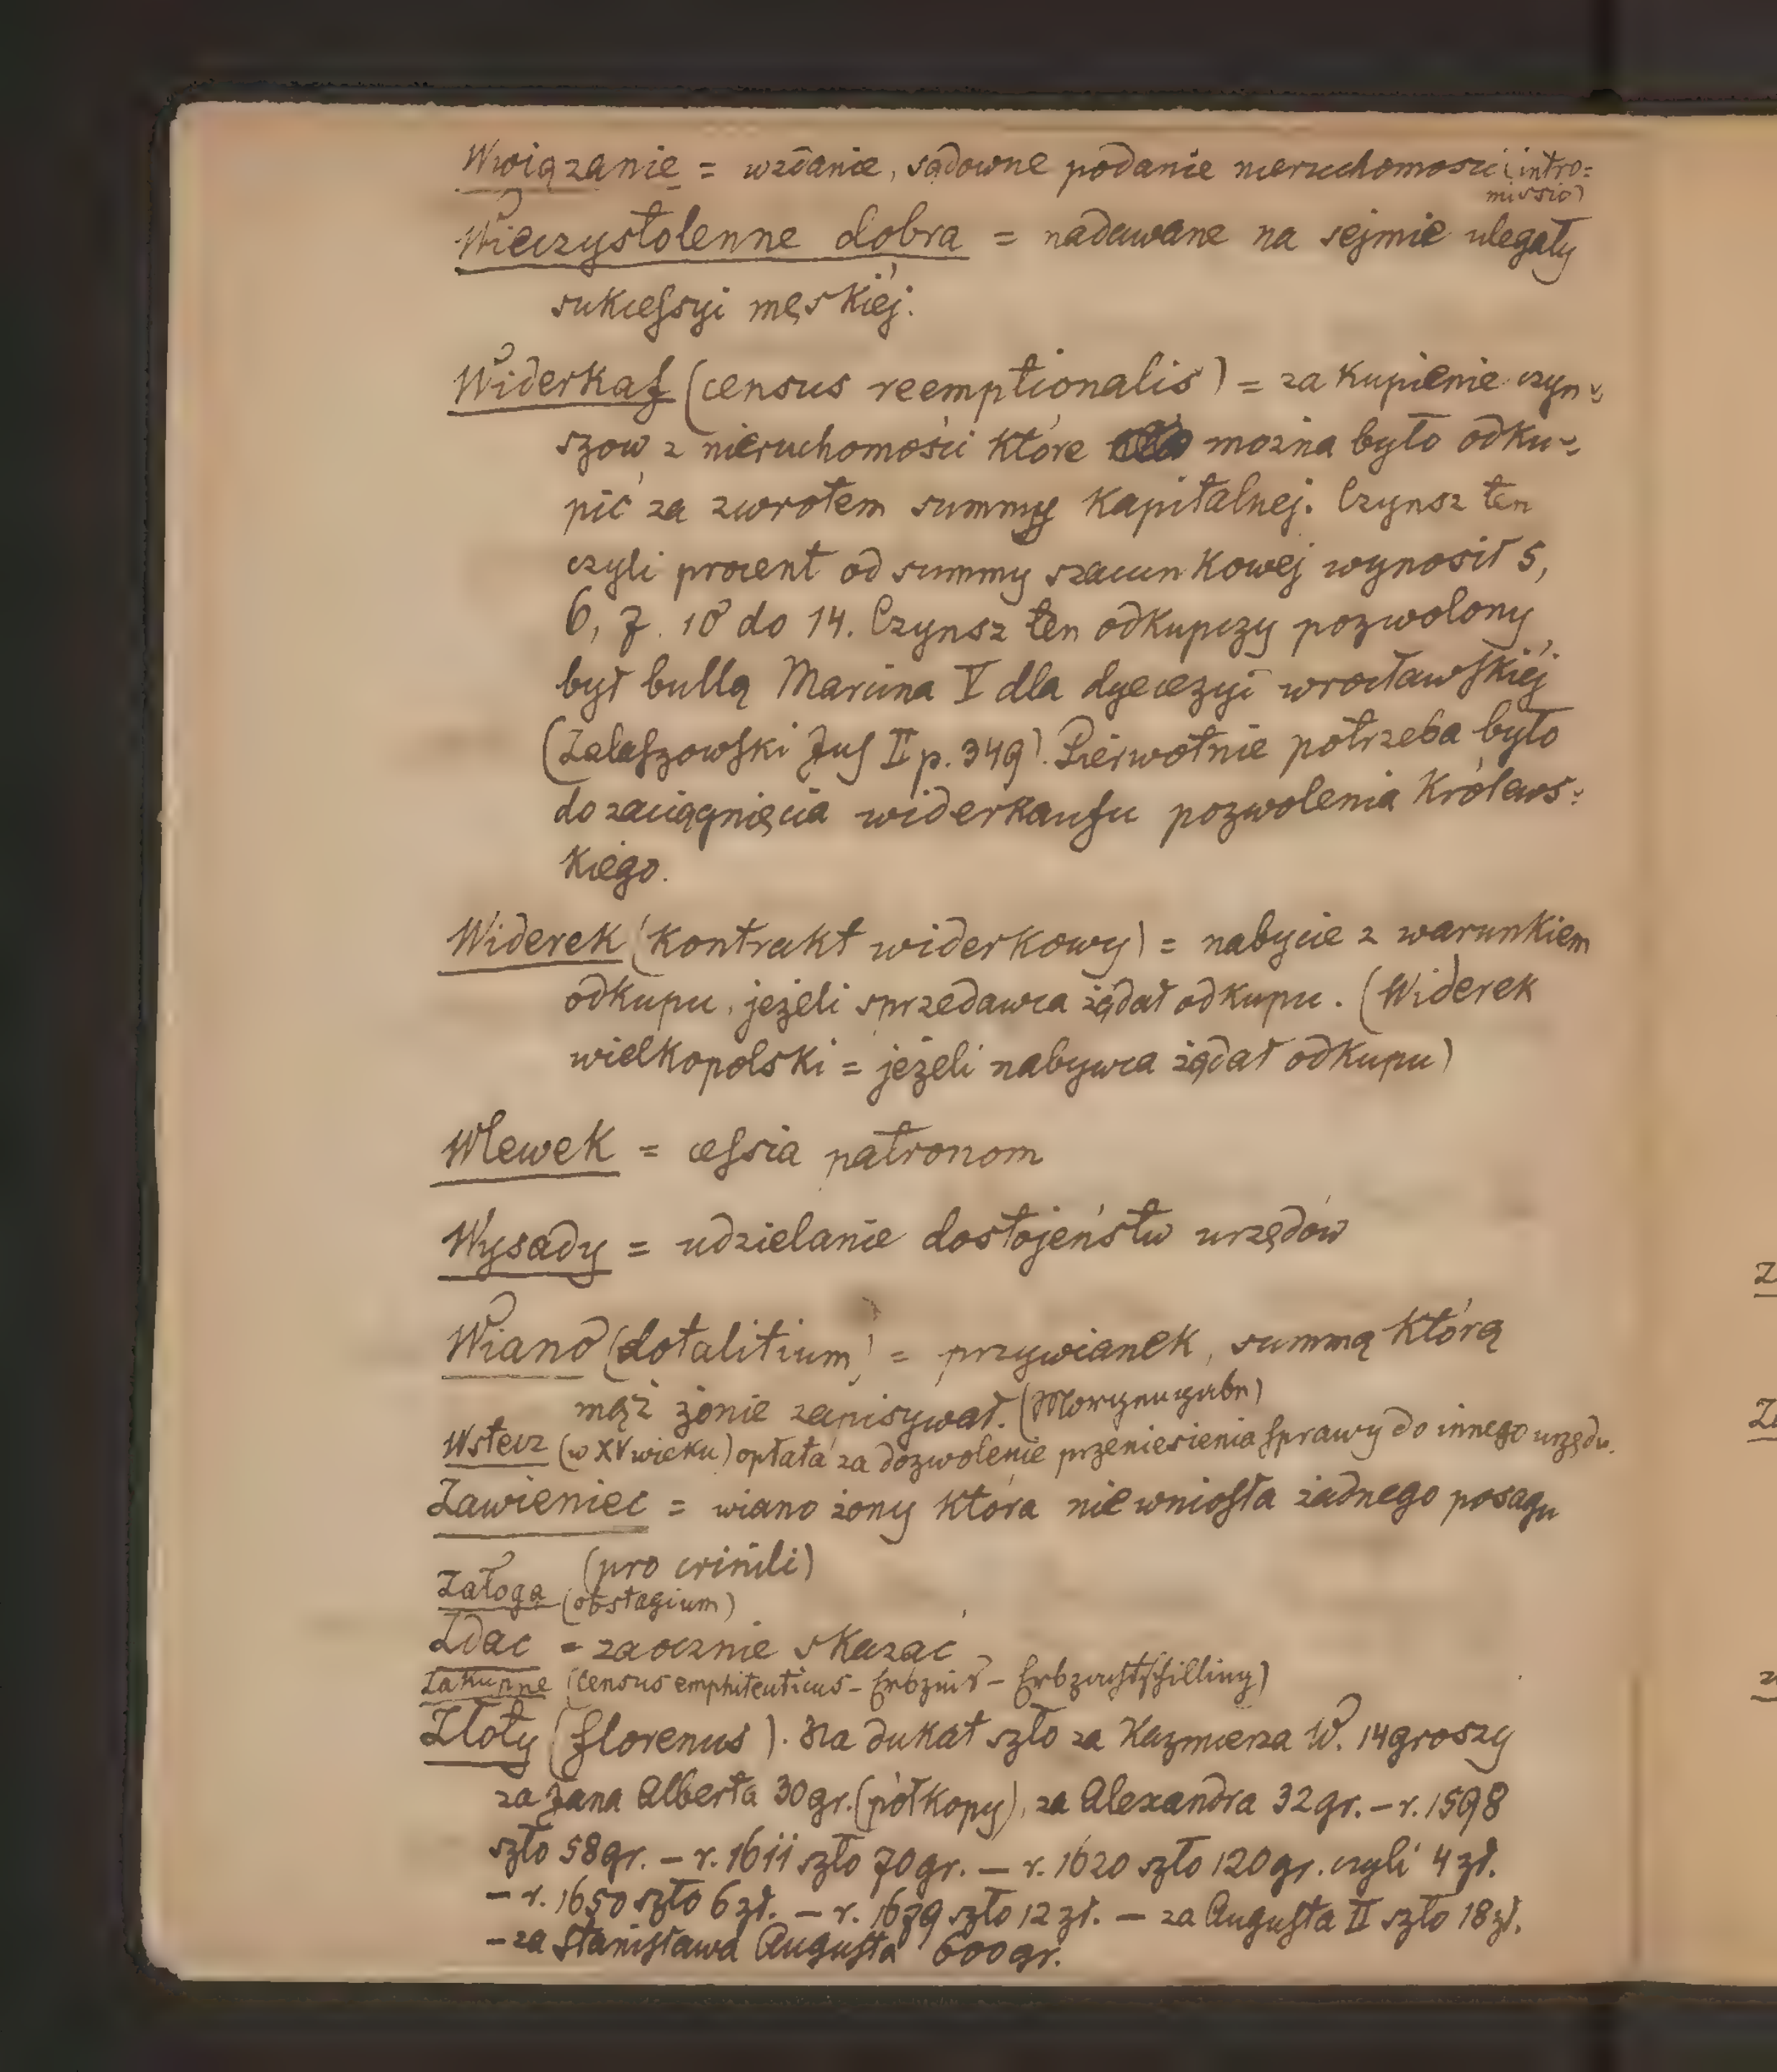 Wwiązanie = wzdanie, sądowne podanie nieruchomości (intro=
missio)
Wieczystolenne dobra = nadawane na sejmie ulegały
sukcessyi męskiéj.
Widerkaf (census reemptionalis) = zakupienie czyn=
szow z nieruchomości które można było odku=
pić za zwrotem summy kapitalnej. Czynsz ten
czyli procent od summy szacunkowej wynosił 5,
6, 7. 10 do 14. Czynsz ten odkupczy pozwolony
był bullą Marcina V dla dyecezyi wrocławskiéj
(Zalaszowski Jus II p. 349). Pierwotnie potrzeba było
do zaciągnięcia widerkaufu pozwolenia królews=
kiego.
Widerek (kontrakt widerkowy) = nabycie z warunkiem
odkupu, jeżeli sprzedawca żądał odkupu. (Widerek
wielkopolski = jeżeli nabywca żądał odkupu)
Wlewek = cessia patronom
Wysady = udzielanie dostojeństw urzędów
Wiano (dotalitium) = przywianek, summą którą
mąż żonie zapisywał. (Morgengabe)
Wstecz (w XV wieku) opłata za dozwolenie przeniesienia sprawy do innego urzędu.
Zawieniec = wiano żony która nie wniosła żadnego posagu
(pro crinili)
Załoga (obstagium)
Zdać = zaocznie skazać
Zakupne (census emphiteuticus - Erbzins -
Złoty (florenus). Na dukat szło za Kazmierza W. 14 groszy
za Jana Alberta 30 gr. (pół kopy), za Alexandra 32 gr. – r. 1598
szło 58 gr. – r. 1611 szło 70 gr. – r. 1620 szło 120 gr. czyli 4 zł.
– r. 1650 szło 6 zł. – r. 1679 szło 12 zł. – za Augusta II szło 18 zł.
– za Stanisława Augusta 600 gr.